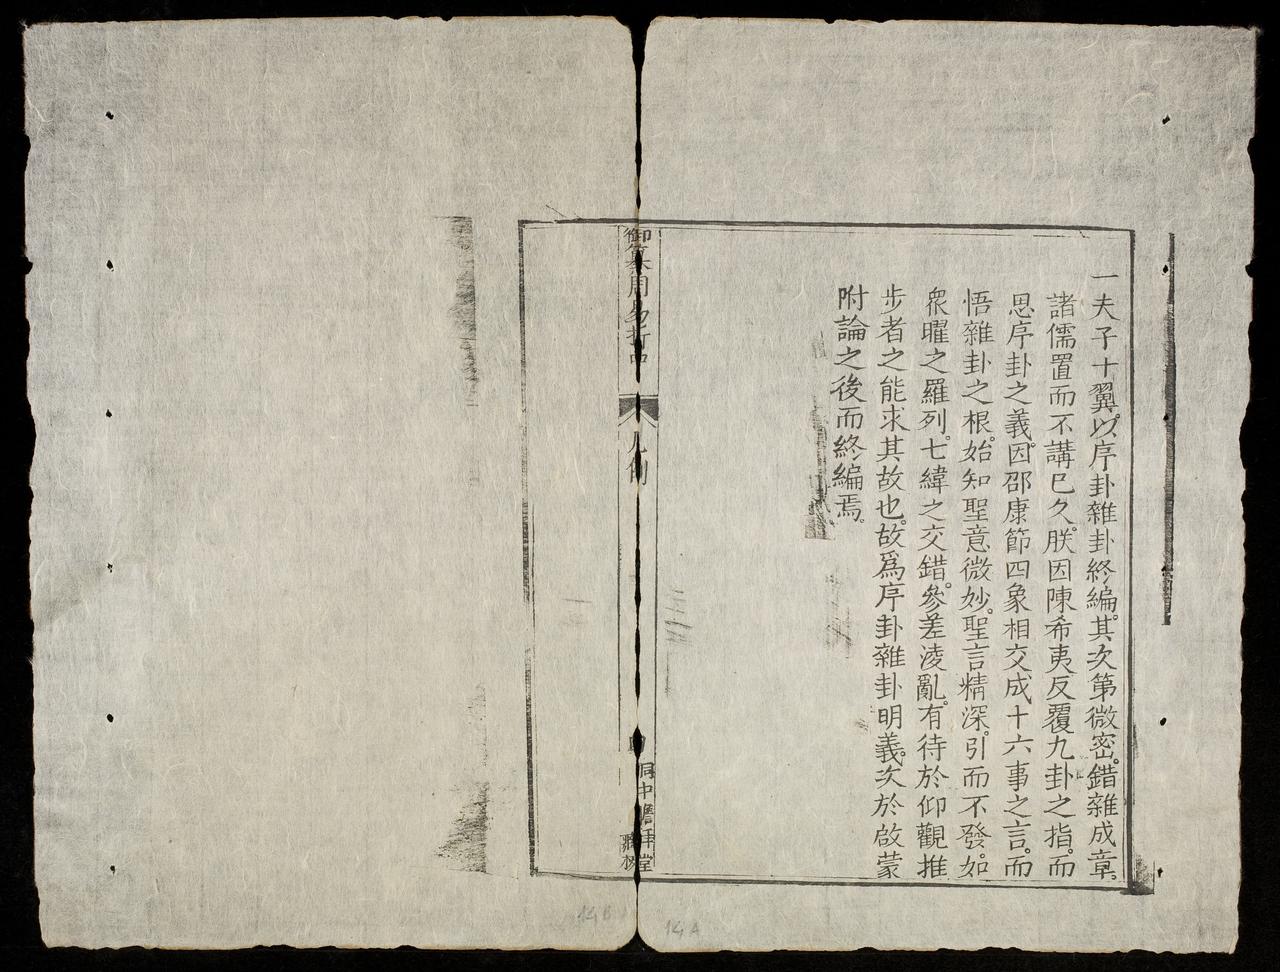 一夫子十翼。以序卦雜卦終編。其次第微密。錯雜成章。
諸儒置而不講已久。朕因陳希夷反覆九卦之指。而
思序卦之義。因邵康節四象相交成十六事之言。而
悟雜卦之根。始知聖意微妙。聖言精深。引而不發。如
衆曜之羅列。七緯之交錯。參差淩亂。有待於仰觀推
步者之能求其故也。故爲序卦雜卦明義。次於啟蒙
附論之後而終編焉。
御纂周易折中
凡例
四
堂
藏板
14 B
14 A